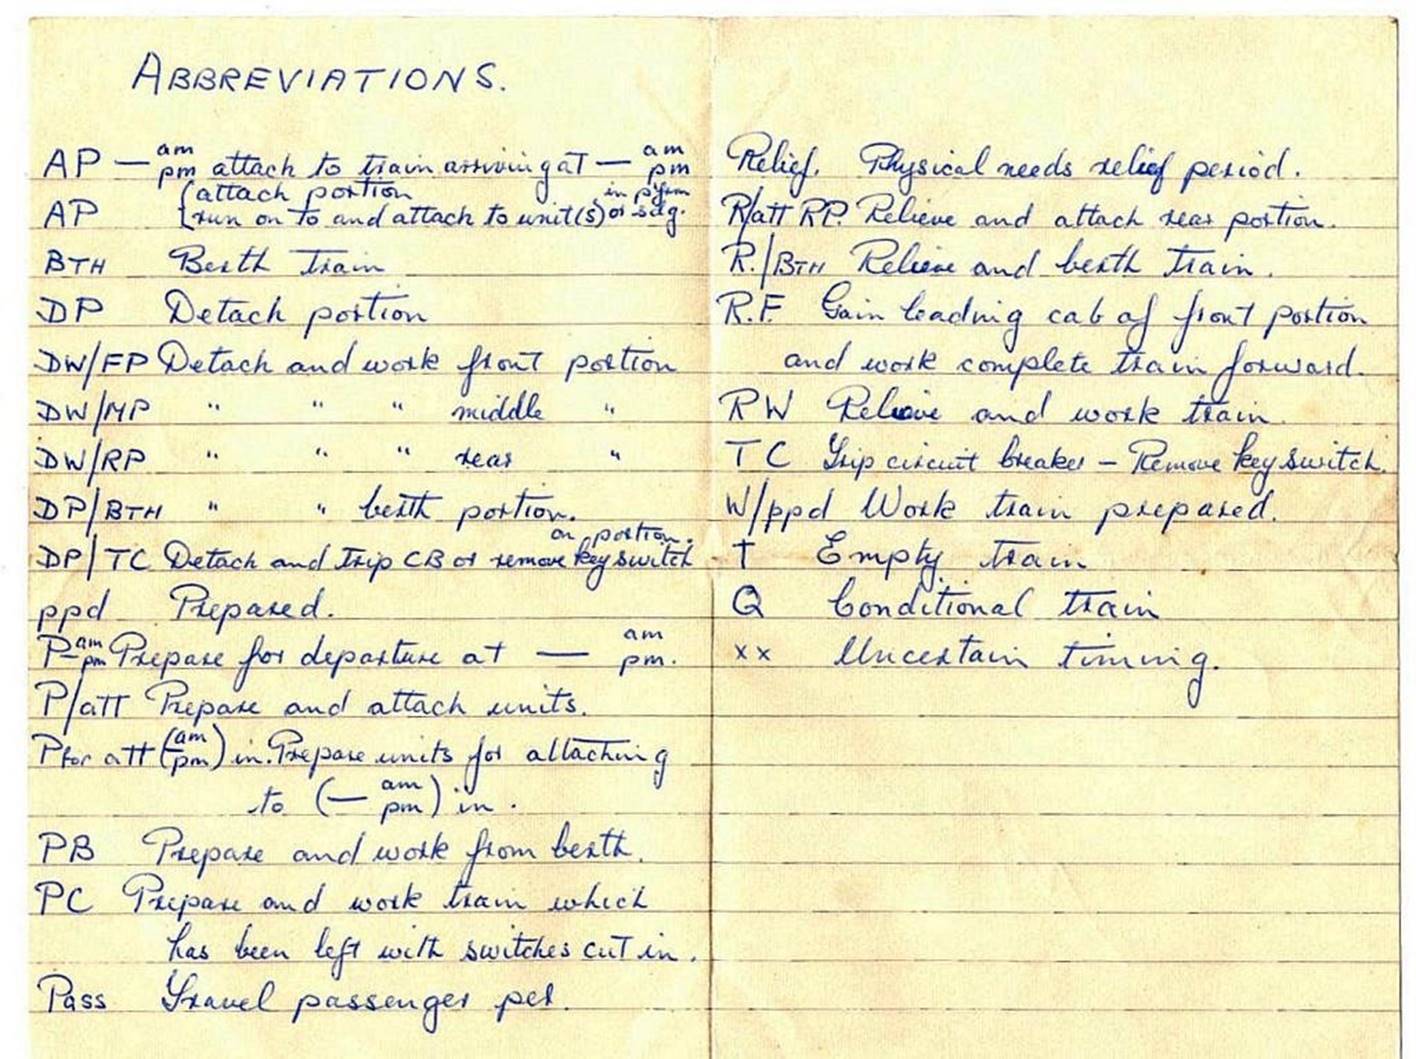 ABBREVIATIONS.
AP — am/pm attach to train arriving at — am/pm
AP { attach portion in pfrm
run on to and attach to unit(s) or sdg.
BTH Berth train
DP Detach portion
DW/FP Detach and work front portion
DW/MP " " " middle "
DW/RP " " " rear "
DP/BTH " " berth portion.
on portion.
DP/TC Detach and trip CB or remove key switch
ppd Prepared.
P—am/pm Prepare for departure at — am/pm.
P/att Prepare and attach units.
P for att (— am/pm) in. Prepare units for attaching
to (— am/pm) in.
PB Prepare and work from berth.
PC Prepare and work train which
has been left with switches cut in.
Pass Travel passenger per.
Relief. Physical needs relief period.
R/att RP. Relieve and attach rear portion.
R./BTH Relieve and berth train.
R.F. Gain leading cab of front portion
and work complete train forward.
RW Relieve and work train.
TC Trip circuit breaker – Remove key switch.
W/ppd Work train prepared.
T Empty train
Q Conditional train
xx Uncertain timing.